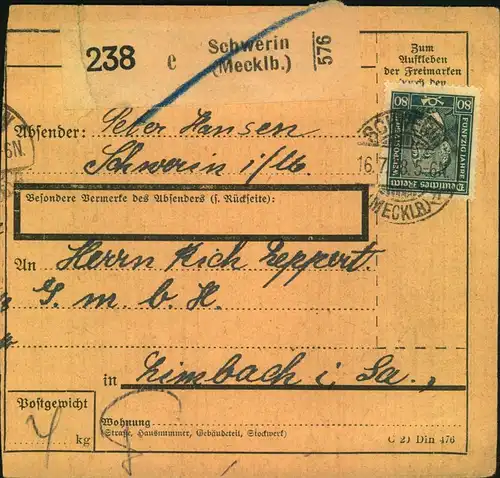 238
e
Schwerin
(Mecklb.)
576
Zum
Aufkleben
der Freimarken
durch den
Absender: Peter Hansen
Schwerin i/M.
80 80
FÜNFZIG JAHRE
WELTPOSTVEREIN
Deutsches Reich
SCHWERIN
16.7. 5-6N
(MECKLB)
N.
Besondere Vermerke des Absenders (s. Rückseite):
An Herrn Rich Leppert.
G. m. b. H.
in Limbach i. Sa.,
Postgewicht
4 kg
Wohnung
(Straße, Hausnummer, Gebäudeteil, Stockwerk)
C 29 Din 476